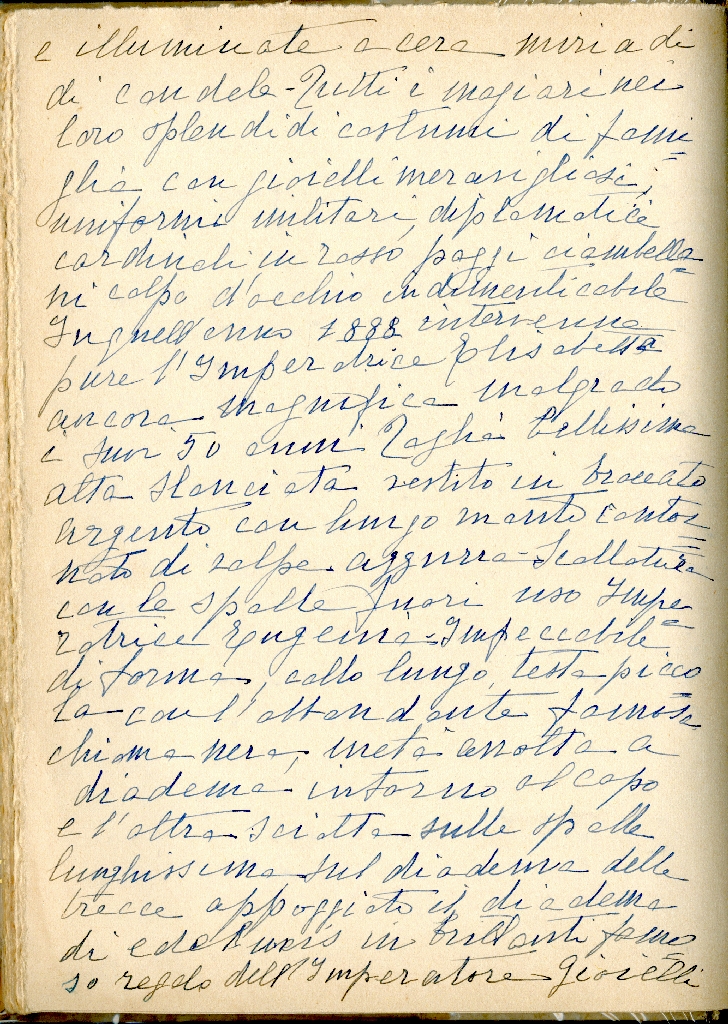 e illuminate a cera miriadi
di candele - Tutti i magiari nei
loro splendidi costumi di fami=
glia con gioielli meravigliosi,
uniformi militari, diplomatici
cardinali in rosso, paggi ciambella=
ni colpo d'occhio indimenticabile
In quell'anno 1888 intervenne
pure l'Imperatrice Elisabetta
ancora magnifica malgrado
i suoi 50 anni Taglia bellissima
alta slanciata vestito in broccato
argento con lungo manto contor=
nato di volpe azzurra - Scollatura
con le spalle fuori uso Impe=
ratrice Eugenia - Impeccabile
di forma, collo lungo, testa picco
la con l'abbondante famosa
chioma nera, metà avvolta a
diadema intorno al capo
e l'altra sciolta sulle spalle
lunghissima sul diadema delle
trecce appoggiato il diadema
di edelweis in brillanti famo
so regalo dell'Imperatore - Gioielli